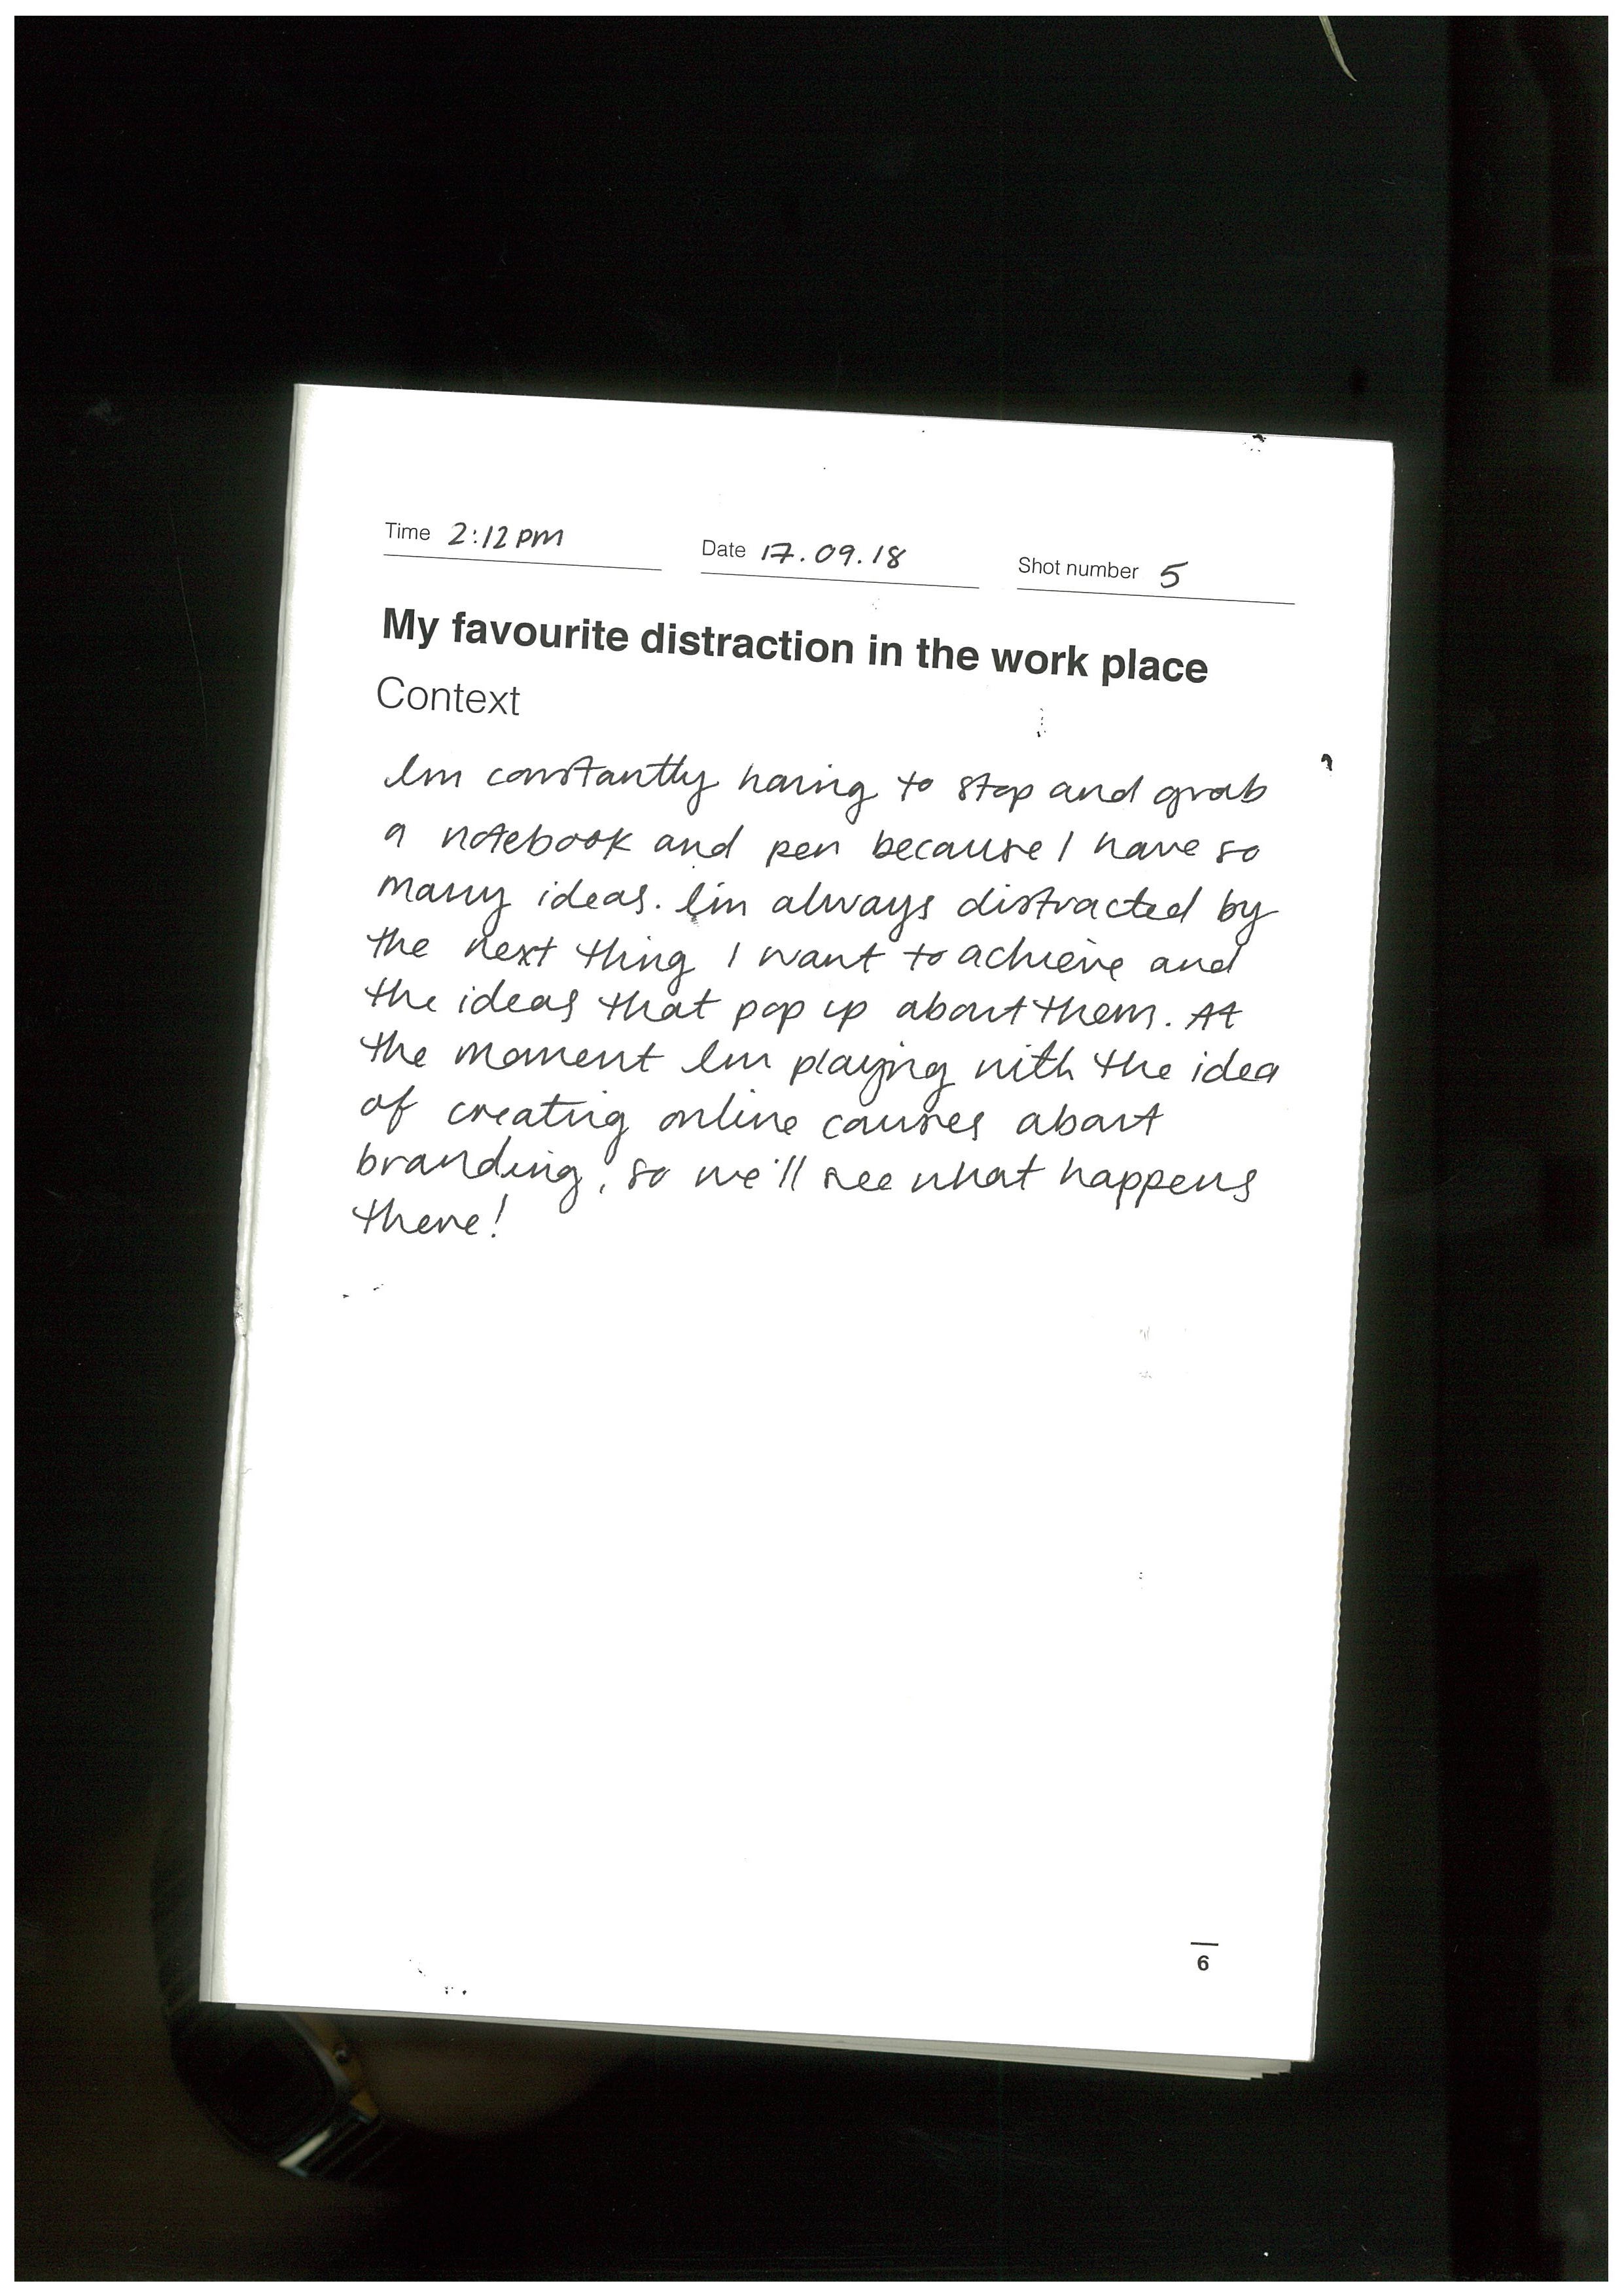 Time 2:12pm Date 17.09.18 Shot number 5
My favourite distraction in the work place
Context
I'm constantly having to stop and grab
a notebook and pen because I have so
many ideas. I'm always distracted by
the next thing I want to achieve and
the ideas that pop up about them. At
the moment I'm playing with the idea
of creating online courses about
branding, so we'll see what happens
there!
6